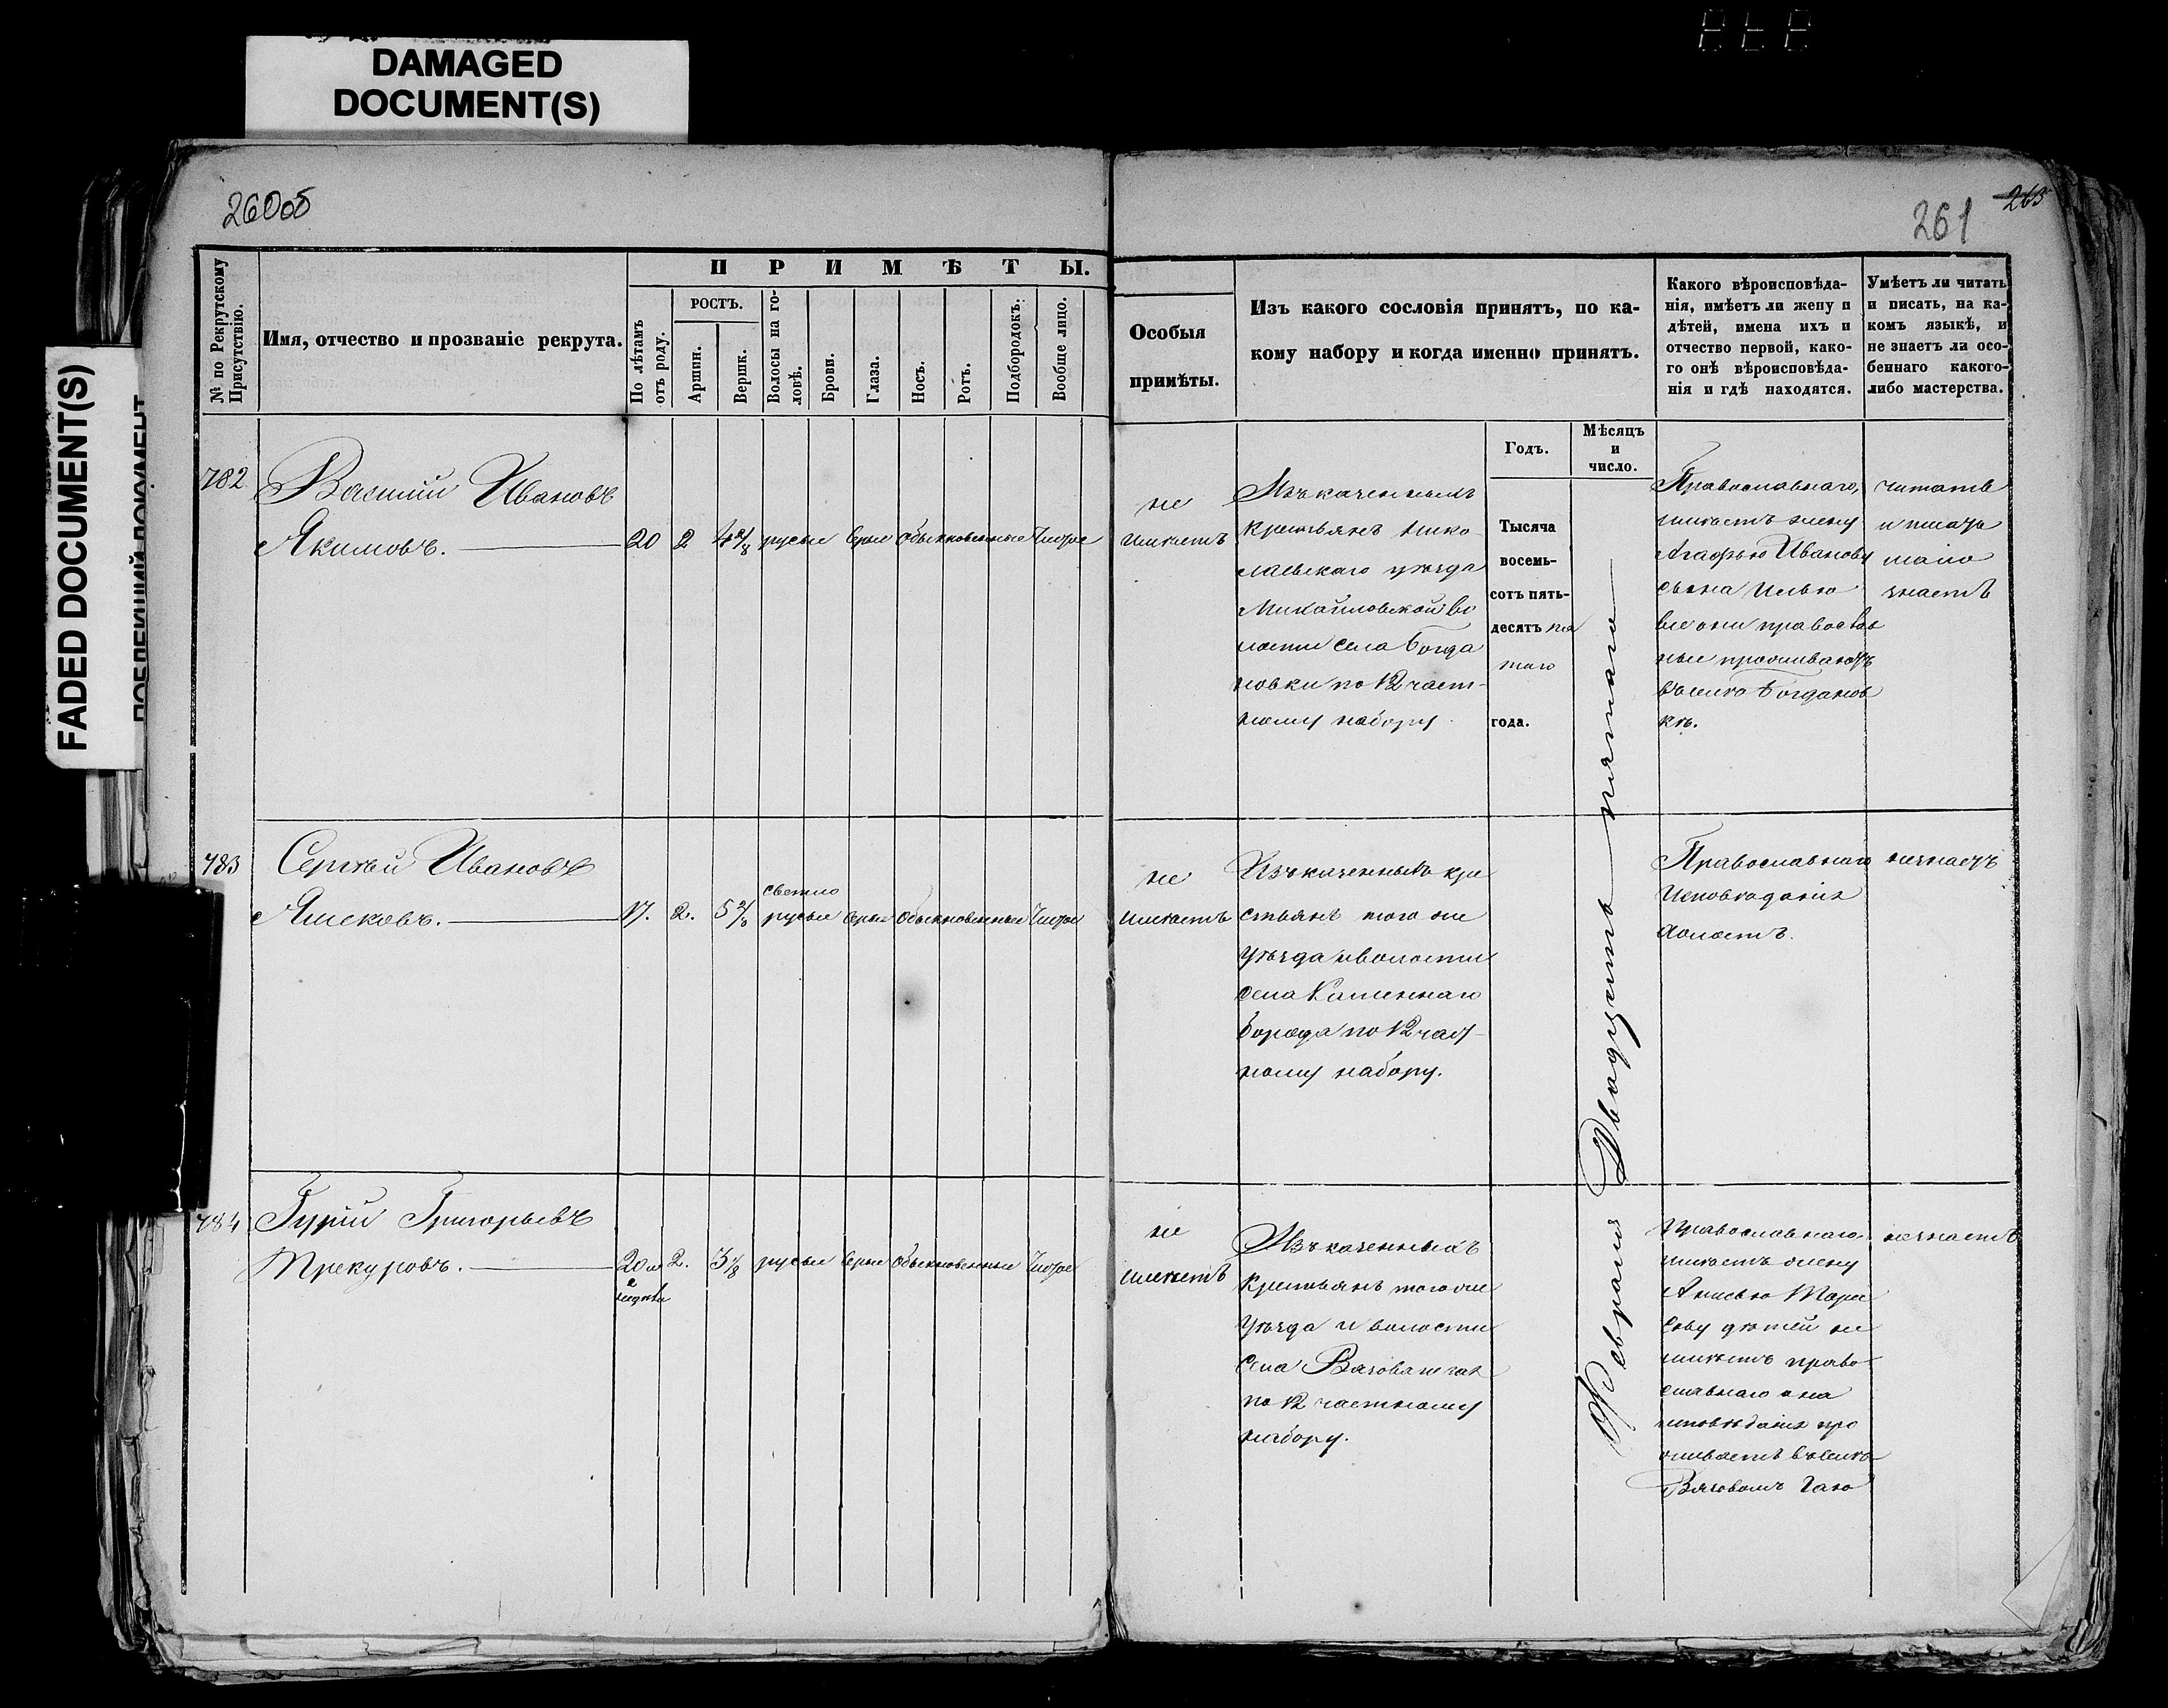 DAMAGED
DOCUMENT(S)
FADED DOCUMENT(S)
260об
261
265
№ по Рекрутскому
Присутствію.
Имя, отчество и прозваніе рекрута.
ПРИМѢТЫ.
По лѣтамъ
отъ роду.
РОСТЪ.
Аршин.
Вершк.
Волосы на го-
ловѣ.
Брови.
Глаза.
Носъ.
Ротъ.
Подбородокъ.
Вообще лицо.
Особыя
примѣты.
Изъ какого сословія принятъ, по ка-
кому набору и когда именно принятъ.
Годъ.
Мѣсяцъ
и
число.
Какого вѣроисповѣда-
нія, имѣетъ ли жену и
дѣтей, имена ихъ и
отчество первой, како-
го онѣ вѣроисповѣда-
нія и гдѣ находятся.
Умѣетъ ли читать
и писать, на ка-
комъ языкѣ, и
не знаетъ ли осо-
беннаго какого-
либо мастерства.
782
Василий Ивановъ
Якимовъ.
20 2 4 2/8 русые серые обыкновенные чистое
не
имѣетъ
Изъ казенныхъ
крестьянъ Нико
лаевскаго уѣзда
Михайловской во
лости села Богда
новки по 12 част-
ному набору
Тысяча
восемь-
сотъ пять-
десятъ пя
таго
года.
Февраля Двадцать пятаго
Православнаго,
имѣетъ жену
Агафью Иванову
сына Илью
все они православ
ные проживаютъ
въ селѣ Богданов
кѣ.
читать
и писать
мало
знаетъ
783
Сергѣй Ивановъ
Яшсковъ.
17. 2. 5 2/8 светло
русые серые обыкновенные чистое
не
имѣетъ
Изъ казенныхъ кре
стьянъ того же
уѣзда и волости
села Каменнаго
Брода по 12 част-
ному набору.
Православнаго
исповѣданія
холостъ.
незнаетъ
784
Гурій Григорьевъ
Трекуровъ.
20 и
2
недѣли
2. 3 1/8 русые серые обыкновенные чистое
не
имѣетъ
Изъ казенныхъ
крестьянъ того же
уѣзда и волости
села Вязовагая
по 12 частному
набору.
Православнаго
имѣетъ жену
Анисью Тара
сову дѣтей не
имѣетъ право
славнаго она
исповѣданія про
живаетъ въ селѣ
Вязовомъ Гаю
незнаетъ